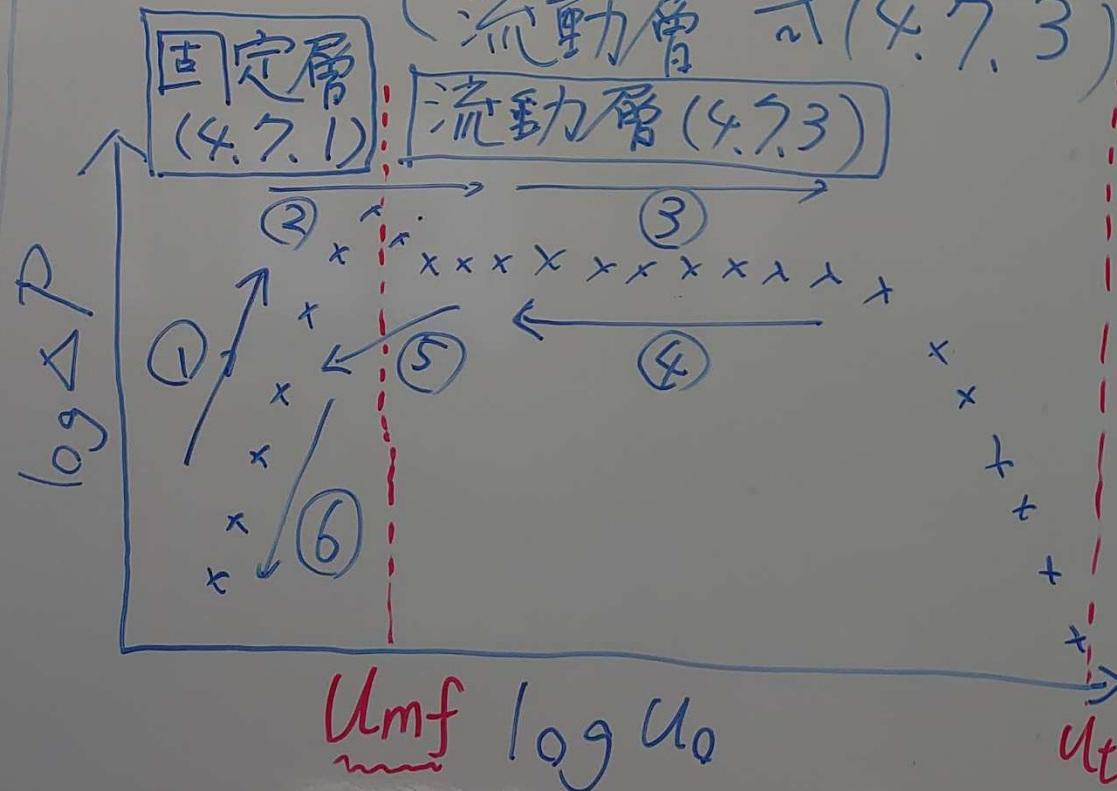 (流動層 式(4.7.3)
固定層
(4.7.1)
流動層(4.7.3)
②
③
①
⑤
④
⑥
log ΔP
Umf
log u₀
ut